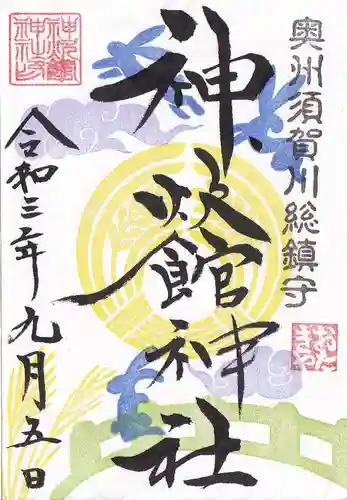 奥州須賀川総鎮守
神炊館神社
令和三年九月五日
神炊館神社